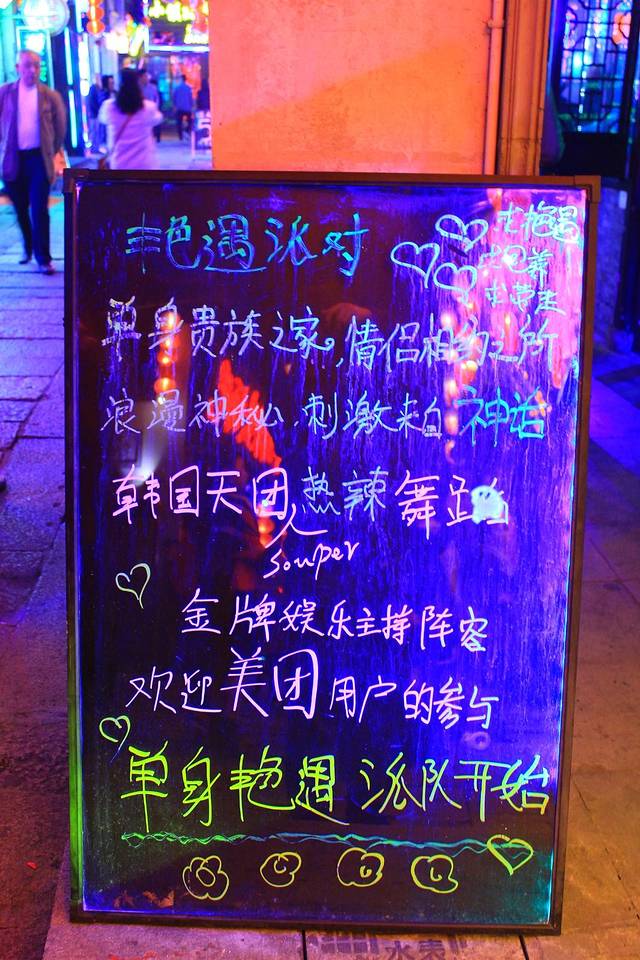 艳遇派对
求艳遇
求包养
求带走
单身贵族之家。,情侣相约之所
浪漫神秘,刺激来自神话
韩国天团热辣舞蹈
souper
金牌娱乐主持阵容
欢迎美团用户的参与
单身艳遇派队开始
水表